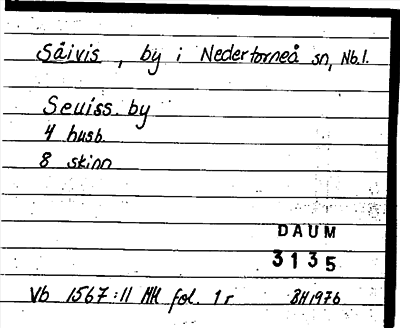 Säivis, by i Nedertorneå sn, Nb.l.
Seuiss. by
4 husb.
8 skinn
DAUM
3135
Vb 1567:11 MH fol. 1r BH1976